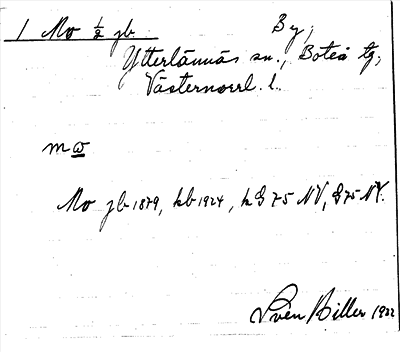 1 Mo ½ jb By,
Ytterlännäs sn., Boteå tg,
Västernorrl. l.
mω
Mo jb 1879, kb 1924, k G 75 NV, G 75 NV.
Sven Biller 1922